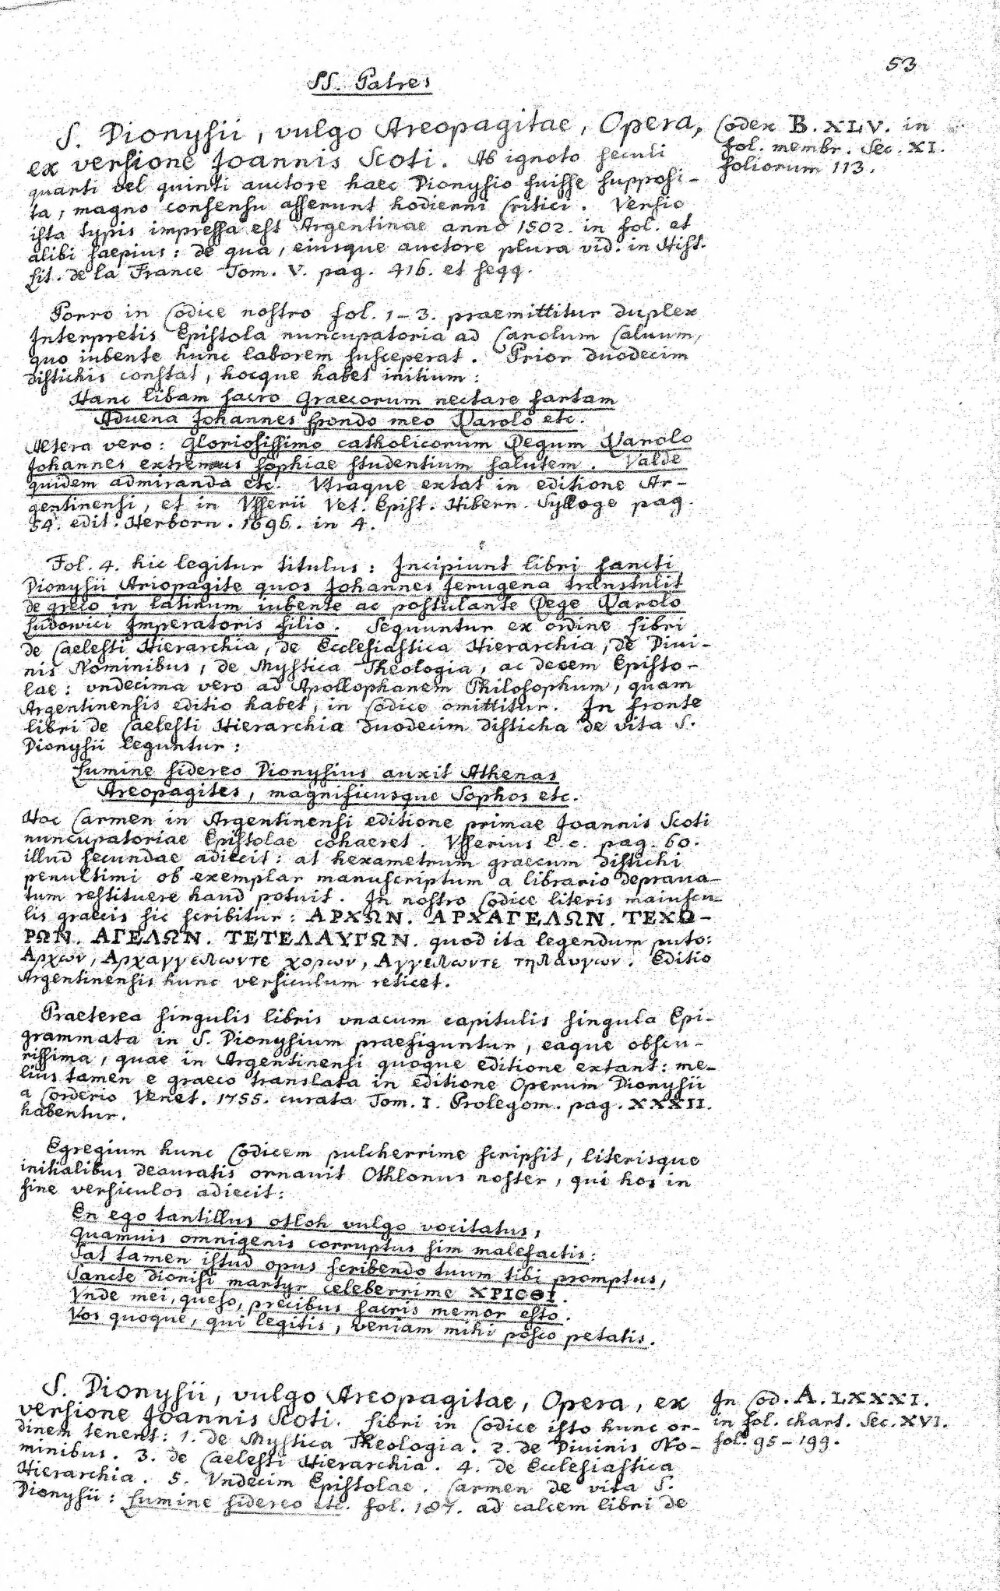 53
SS. Patres
S. Dionysii, vulgo Areopagitae, Opera,
ex versione Joannis Scoti. Ab ignoto seculi
quarti vel quinti auctore haec Dionysio fuisse supposi-
ta, magno consensu asserunt hodierni Critici. Versio
ista typis impressa est Argentinae anno 1502. in fol. et
alibi saepius: de qua, eiusque auctore plura vid. in Hist.
Lit. de la France Tom. V. pag. 416. et seqq.
Codex B. XLV. in
fol. membr. Sec. XI.
foliorum 113.
Porro in Codice nostro fol. 1-3. praemittitur duplex
Interpretis Epistola nuncupatoria ad Carolum Caluum,
quo iubente hunc laborem susceperat. Prior duodecim
distichis constat, hocque habet initium:
Hanc libam sacro Graecorum nectare fartam
Aduena Johannes spondo meo Karolo etc.
Altera vero: Gloriosissimo catholicorum Regum Karolo
Johannes extremus sophiae studentium salutem. Valde
quidem admiranda etc. Vtraque extat in editione Ar-
gentinensi, et in Vsserii Vet. Epist. Hibern. Sylloge pag.
54. edit. Herborn. 1696. in 4.
Fol. 4. hic legitur titulus: Incipiunt libri sancti
Dionysii Ariopagite quos Johannes Ierugena transtulit
de greco in latinum iubente ac postulante Rege Karolo
Ludowici Imperatoris filio. Sequuntur ex ordine Libri
de Caelesti Hierarchia, de Ecclesiastica Hierarchia, de Diui-
nis Nominibus, de Mystica Theologia, ac decem Episto-
lae: vndecima vero ad Apollophanem Philosophum, quam
Argentinensis editio habet, in Codice omittitur. In fronte
libri de Caelesti Hierarchia duodecim disticha de vita S.
Dionysii leguntur:
Lumine sidereo Dionysius auxit Athenas
Areopagites, magnificusque Sophos etc.
Hoc Carmen in Argentinensi editione primae Joannis Scoti
nuncupatoriae Epistolae cohaeret. Vsserius l. c. pag. 60.
illud secundae adiecit: at hexametrum graecum distichi
penultimi ob exemplar manuscriptum a librario deprava-
tum restituere haud potuit. In nostro Codice literis maiuscu-
lis graecis sic scribitur: ΑΡΧΩΝ. ΑΡΧΑΓΕΛΩΝ. ΤΕΧΩ-
ΡΩΝ. ΑΓΕΛΩΝ. ΤΕΤΕΛΑΥΓΩΝ. quod ita legendum puto:
Αρχων, Αρχαγγελωντε χορων, Αγγελωντε τηλαυγων. Editio
Argentinensis hunc versiculum reticet.
Praeterea singulis libris vnacum capitulis singula Epi-
grammata in S. Dionysium praefiguntur, eaque obscu-
rissima, quae in Argentinensi quoque editione extant: me-
lius tamen e graeco translata in editione Operum Dionysii
a Corderio Venet. 1755. curata Tom. I. Prolegom. pag. XXXII.
habentur.
Egregium hunc Codicem pulcherrime scripsit, literisque
initialibus deauratis ornauit Othlonus noster, qui hos in
fine versiculos adiecit:
En ego tantillus otloh vulgo vocitatus,
Quamuis omnigenis corruptus sim malefactis:
Sat tamen istud opus scribendo tuum tibi promptus,
Sancte dionisi martyr celeberrime ΧΡΙCΘΙ.
Vnde mei, queso, precibus sacris memor esto.
Vos quoque, qui legitis, veniam mihi posco petatis.
S. Dionysii, vulgo Areopagitae, Opera, ex
versione Joannis Scoti. Libri in Codice isto hunc or-
dinem tenent: 1. de Mystica Theologia. 2. de Diuinis No-
minibus. 3. de Caelesti Hierarchia. 4. de Ecclesiastica
Hierarchia. 5. Vndecim Epistolae. Carmen de vita S.
Dionysii: Lumine sidereo etc. fol. 187. ad calcem libri de
In Cod. A. LXXXI.
in fol. chart. Sec. XVI.
fol. 95-199.